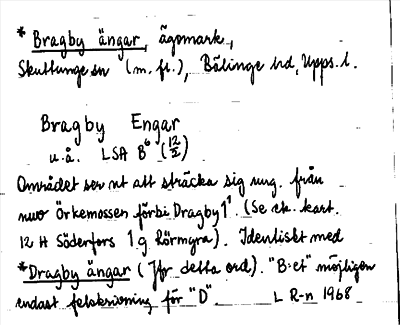 * Bragby ängar, ägomark,
Skuttunge sn (m. fl.), Bälinge hd, Upps. l.
Bragby Engar
u.å. LSA B⁶ (12/2)
Området ser ut att sträcka sig ung. från
nuv Örkemossen förbi Dragby 1¹. (Se ek. kart.
12 H Söderfors 1 g Rörmyra). Identiskt med
*Dragby ängar (Jfr detta ord). "B:et" möjligen
endast felskrivning för "D" L R-n 1968